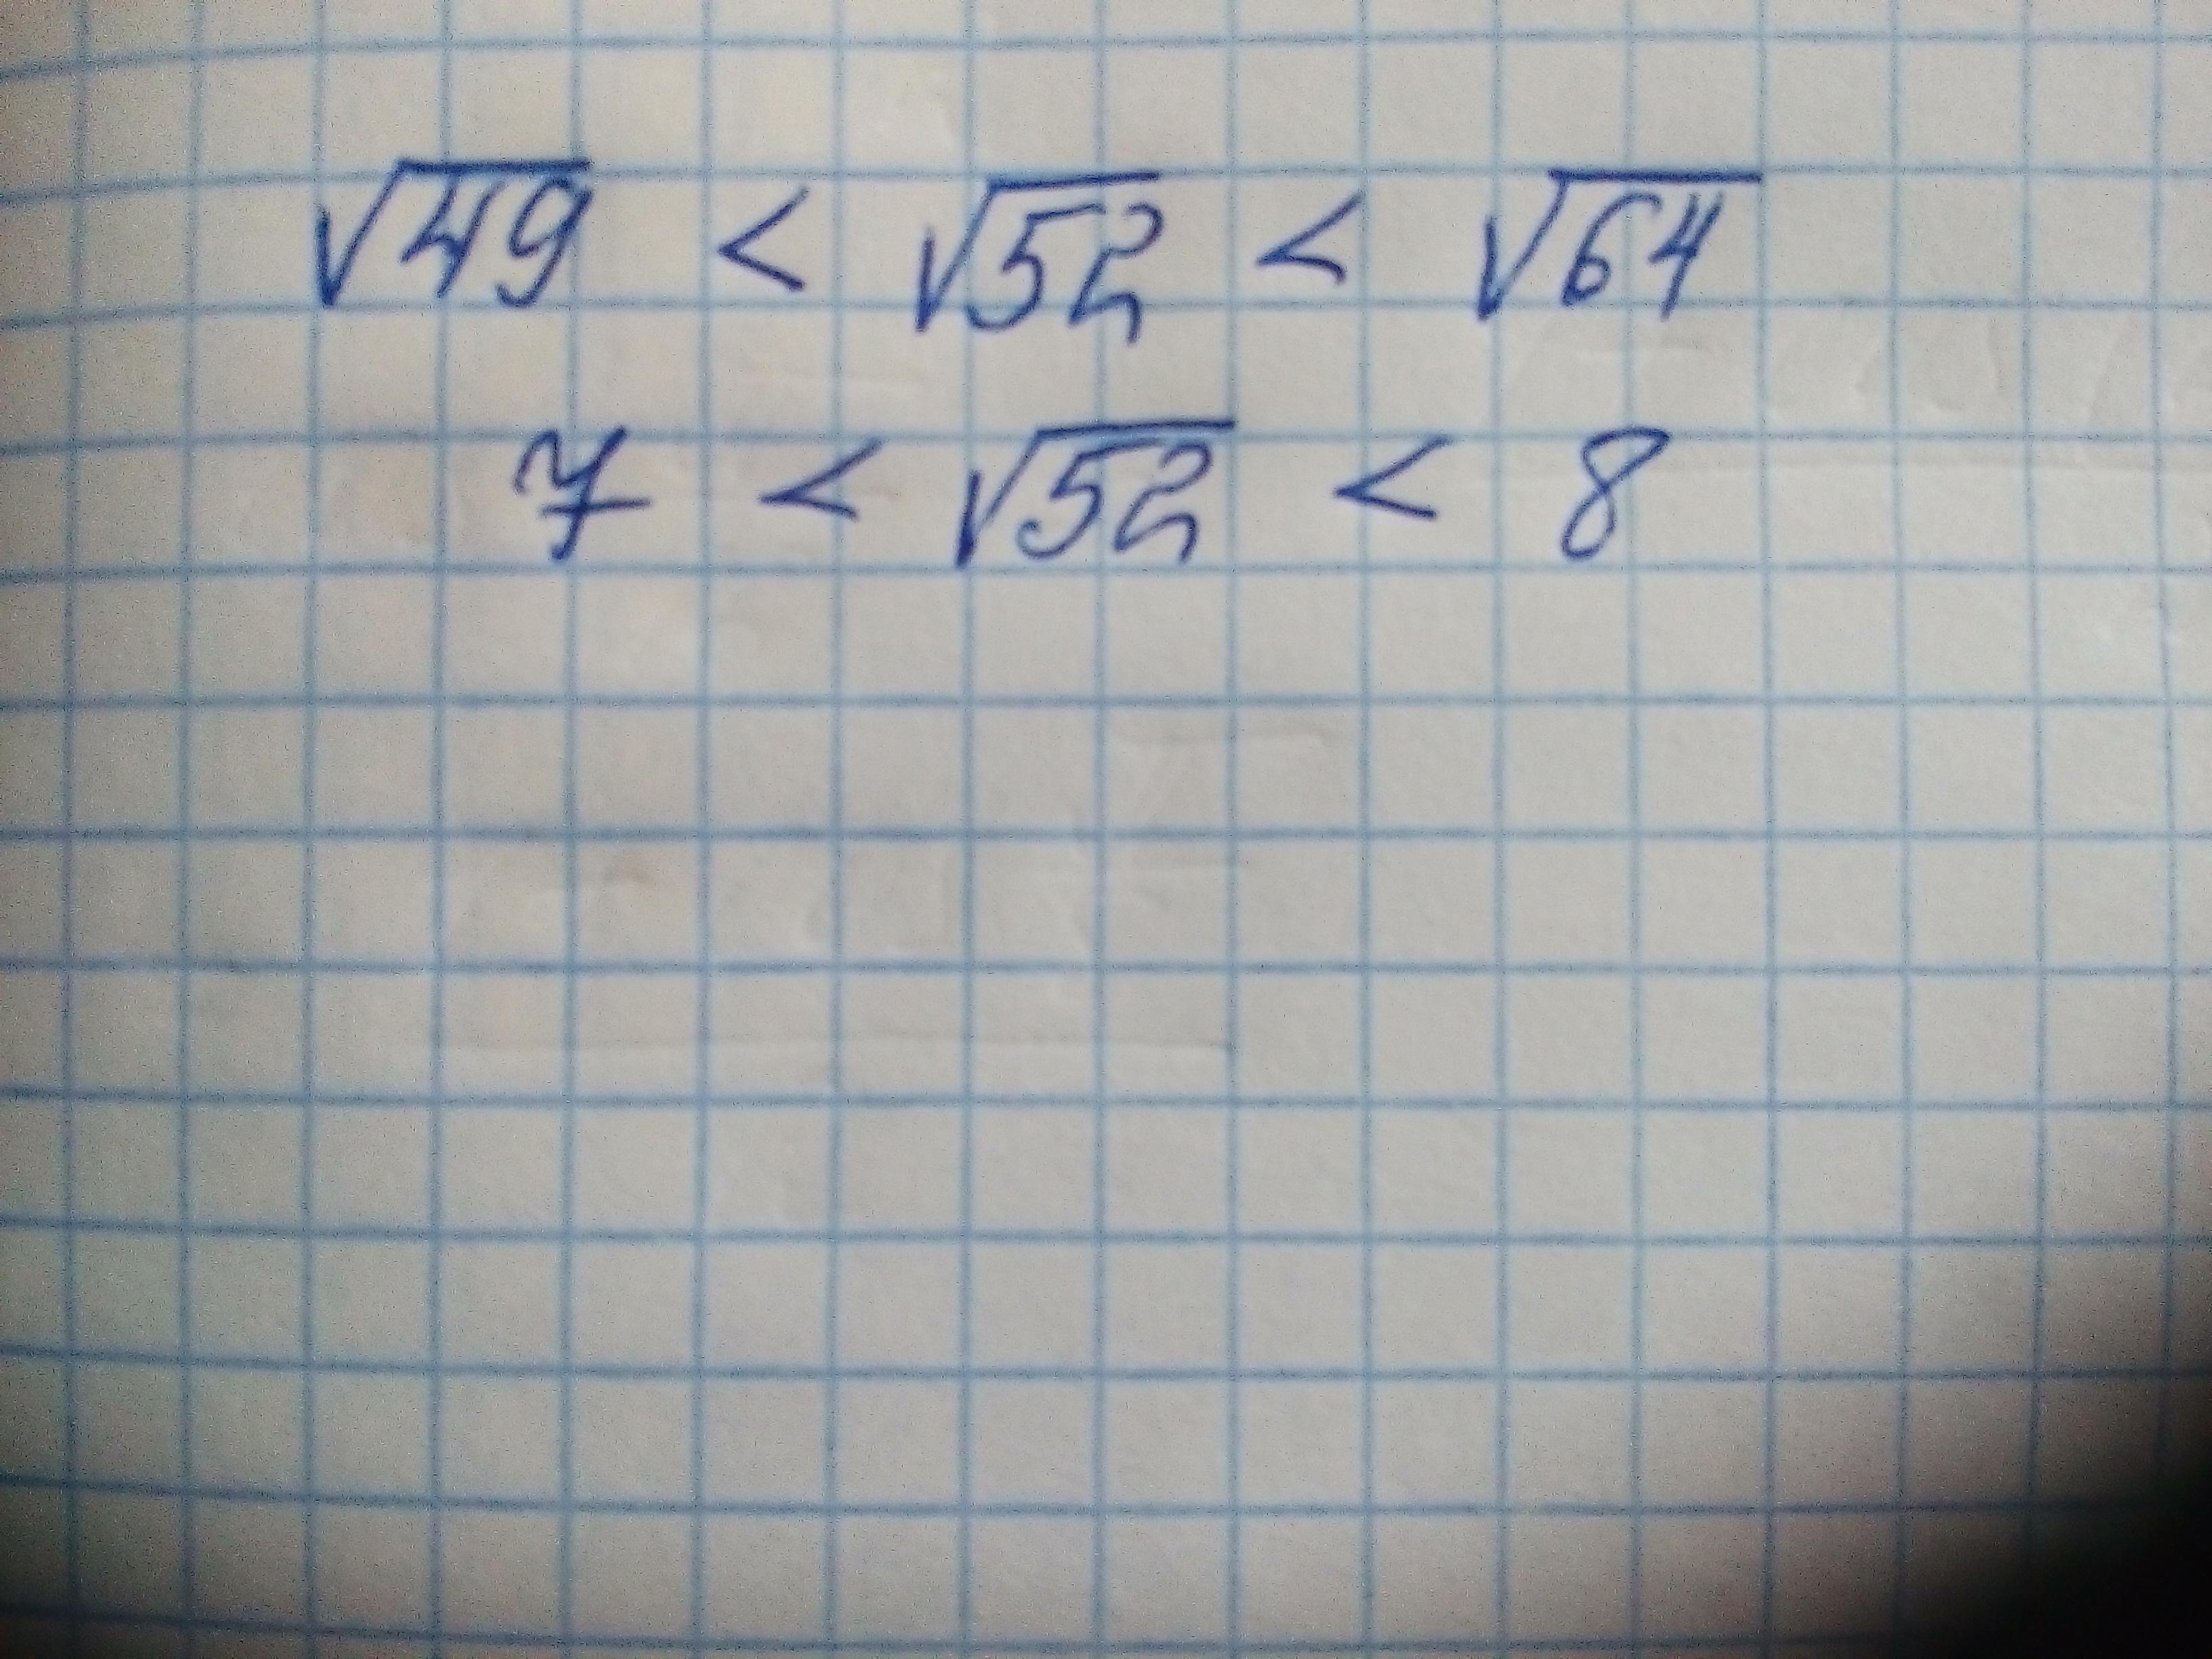 √49 < √52 < √64
7 < √52 < 8